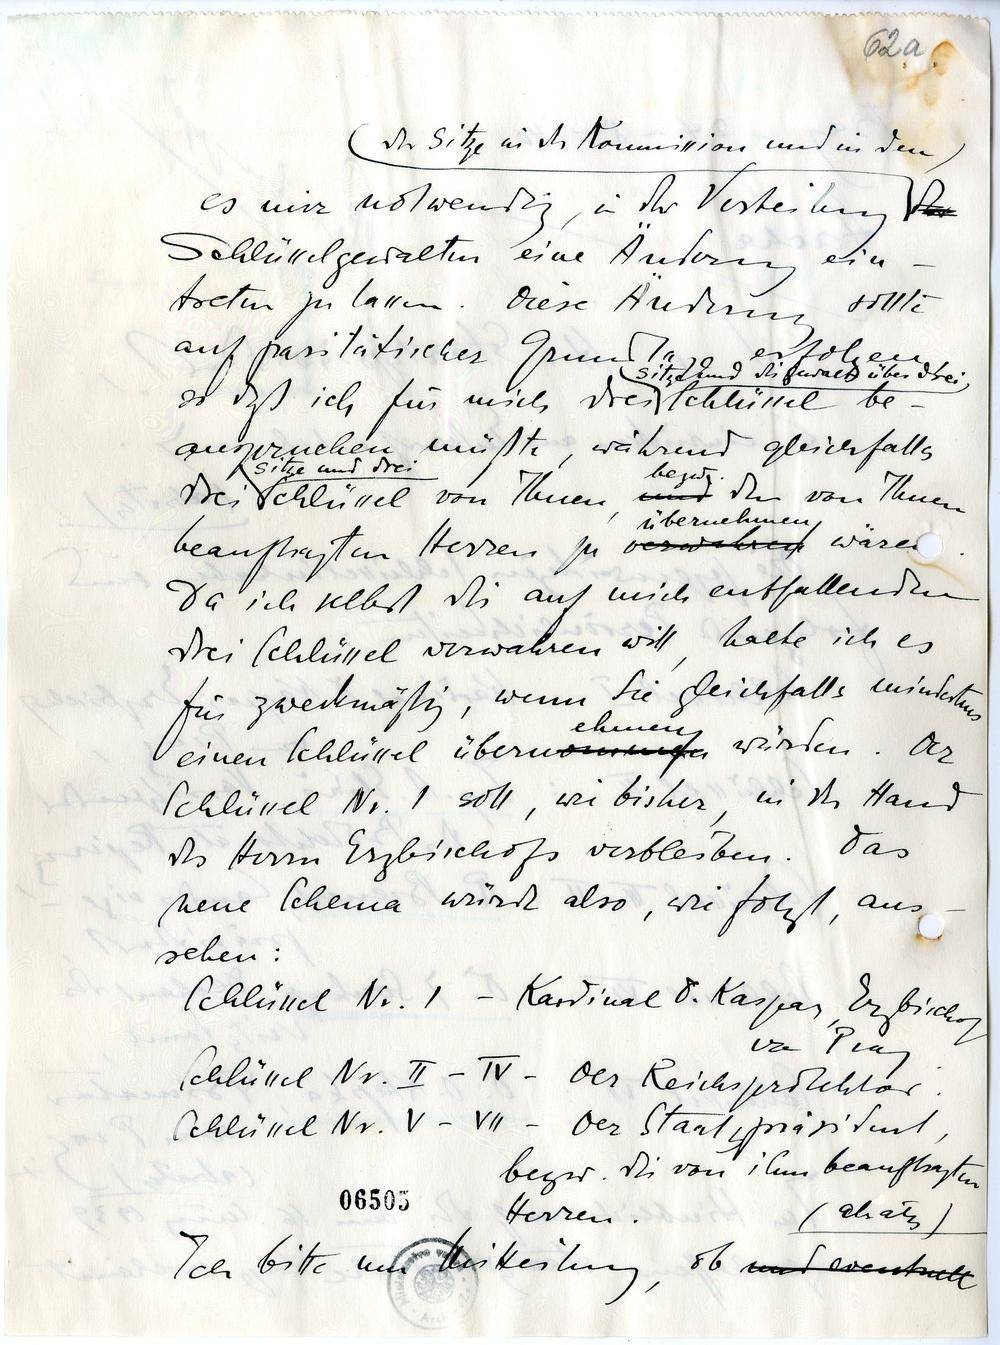 62a
(der Sitze in der Kommission und in den)
es mir notwendig, in der Verteilung der
Schlüsselgewalten eine Änderung ein-
treten zu lassen. Diese Änderung sollte
auf paritätischer Grundlage erfolgen
Sitze und die Gewalt über drei
so dass ich für mich drei Schlüssel be-
anspruchen müßte, während gleichfalls
Sitze und drei bezw.
drei Schlüssel von Ihnen, und den von Ihnen
übernehmen
beauftragten Herren zu verwahren wären.
Da ich selbst die auf mich entfallenden
drei Schlüssel verwahren will, halte ich es
für zweckmäßig, wenn Sie gleichfalls mindestens
ehmen
einen Schlüssel übernommen würden. Der
Schlüssel Nr. 1 soll, wie bisher, in der Hand
des Herrn Erzbischofs verbleiben. Das
neue Schema würde also, wie folgt, aus-
sehen:
Schlüssel Nr. 1 - Kardinal D. Kaspar, Erzbischof
von Prag
Schlüssel Nr. II - IV - Der Reichsprotektor.
Schlüssel Nr. V - VII - Der Staatspräsident,
bezw. die von ihm beauftragten
Herren. (Absatz)
06505
Ich bitte um Mitteilung, ob und eventuell